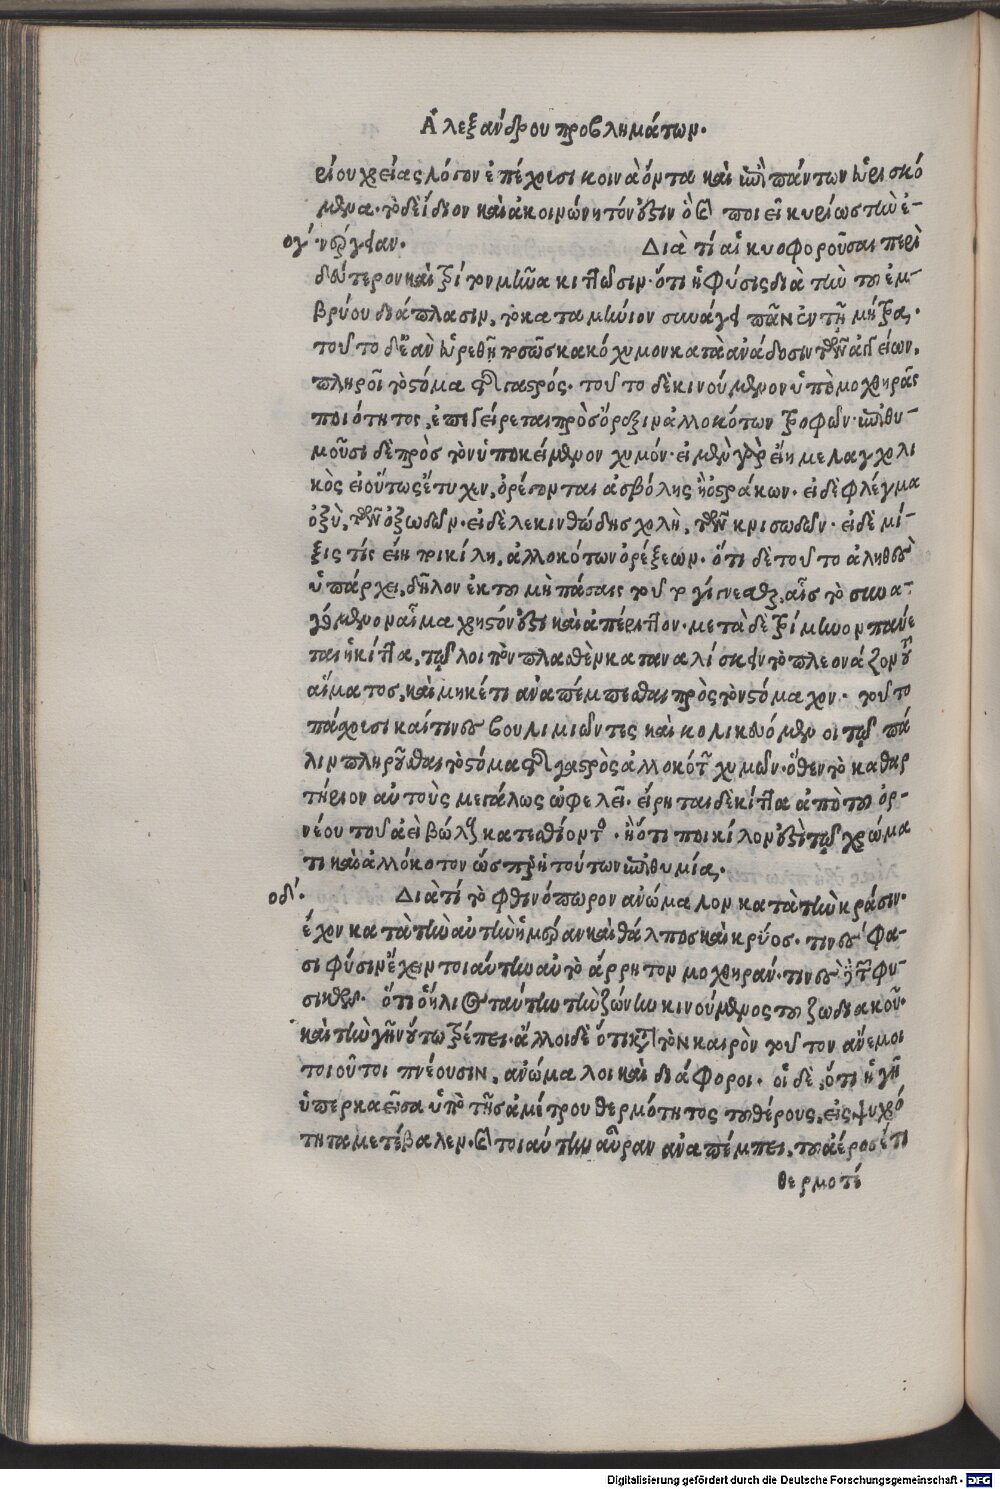 Ἀλεξάνδρου προβλημάτων.
ρίου χρείας λόγον ἐπέχουσι κοινὰ ὄντα καὶ ἐπὶ πάντων εὑρισκό
μενα· τὸ δὲ ἴδιον καὶ ἀκοινώνητόν ἐστιν ὃ καὶ ποιεῖ κυρίως τὴν ἐ-
ογ´ νέργειαν. Διὰ τί αἱ κυοφοροῦσαι περὶ
δεύτερον καὶ τρίτον μῆνα κιττῶσιν· ὅτι ἡ φύσις διὰ τὴν τοῦ ἐμ-
βρύου διάπλασιν, τὸ καταμήνιον συνάγει πᾶν ἐν τῇ μήτρᾳ.
τοῦτο δ' ἐὰν εὑρεθῇ πως κακόχυμον κατὰ ἀνάδοσιν τῶν ἀγγείων,
πληροῖ τὸ στόμα τῆς γαστρός. τοῦτο δὲ κινούμενον ὑπὸ μοχθηρᾶς
ποιότητος, ἐπεγείρεται πρὸς ὄρεξιν ἀλλοκότων τροφῶν· ἐπιθυ-
μοῦσι δὲ πρὸς τὸν ὑποκείμενον χυμόν· εἰ μὲν γὰρ εἴη μελαγχολι
κὸς εἰ οὕτως ἔτυχεν, ὀρέγονται ἀσβόλης ἢ ὀστράκων· εἰ δὲ φλέγμα
ὀξὺ, τῶν ὀξωδῶν· εἰ δὲ λεκιθώδης χολὴ, τῶν κρισωδῶν· εἰ δὲ μί-
ξις τίς εἴη ποικίλη, ἀλλοκότων ὀρέξεων. ὅτι δὲ τοῦτο ἀληθὲς
ὑπάρχει, δῆλον ἐκ τοῦ μὴ πάσαις τοῦτο γίγνεσθαι, αἷς τὸ συνα-
γόμενον αἷμα χρηστόν ἐστι καὶ ἀπέριττον· μετὰ δὲ τρίμηνον παύε
ται ἡ κίττα, τῶν λοιπὸν πλασθὲν καταναλίσκειν τὸ πλεονάζον τοῦ
αἵματος, καὶ μηκέτι ἀναπέμπεσθαι πρὸς τὸν στόμαχον. τοῦτο
πάσχουσι καί τινες βουλιμιῶντες καὶ κολικευόμενοι τῷ πά
λιν πληροῦσθαι τὸ στόμα τῆς γαστρὸς ἀλλοκότων χυμῶν· ὅθεν τὸ καθαρ
τήριον αὐτοὺς μεγάλως ὠφελεῖ. εἴρηται δὲ κίττα ἀπὸ τοῦ ὀρ-
νέου τοῦ ἀεὶ βώλους κατεσθίοντος. ἢ ὅτι ποικίλον ἐστὶ τῷ χρώμα
τι καὶ ἀλλόκοτον ὥσπερ ἡ τούτων ἐπιθυμία.
οδ´. Διὰ τί τὸ φθινόπωρον ἀνώμαλον κατὰ τὴν κρᾶσιν·
ἔχον κατὰ τὴν αὐτὴν ἡμέραν καὶ θάλπος καὶ κρύος. τινὲς φα-
σὶ φύσιν ἔχειν τοιαύτην αὐτὸ ἄρρητον μοχθηράν. τινὲς ἢ τῶν φυ-
σικῶν. ὅτι ὁ ἥλιος ταύτην τὴν ζώνην κινούμενος τοῦ ζωδιακοῦ.
καὶ τὴν γῆν οὕτω τρέπει. ἄλλοι δὲ ὅτι κατὰ τὸν καιρὸν τοῦτον ἄνεμοι
τοιοῦτοι πνέουσιν, ἀνώμαλοι καὶ διάφοροι. οἱ δὲ, ὅτι ἡ γῆ
ὑπερκαεῖσα ὑπὸ τῆς ἀμέτρου θερμότητος τοῦ θέρους, εἰς ψυχρό
τητα μετέβαλεν. καὶ τοιαύτην αὔραν ἀναπέμπει, τοῦ ἀέρος ἔτι
θερμοτέ
Digitalisierung gefördert durch die Deutsche Forschungsgemeinschaft - DFG